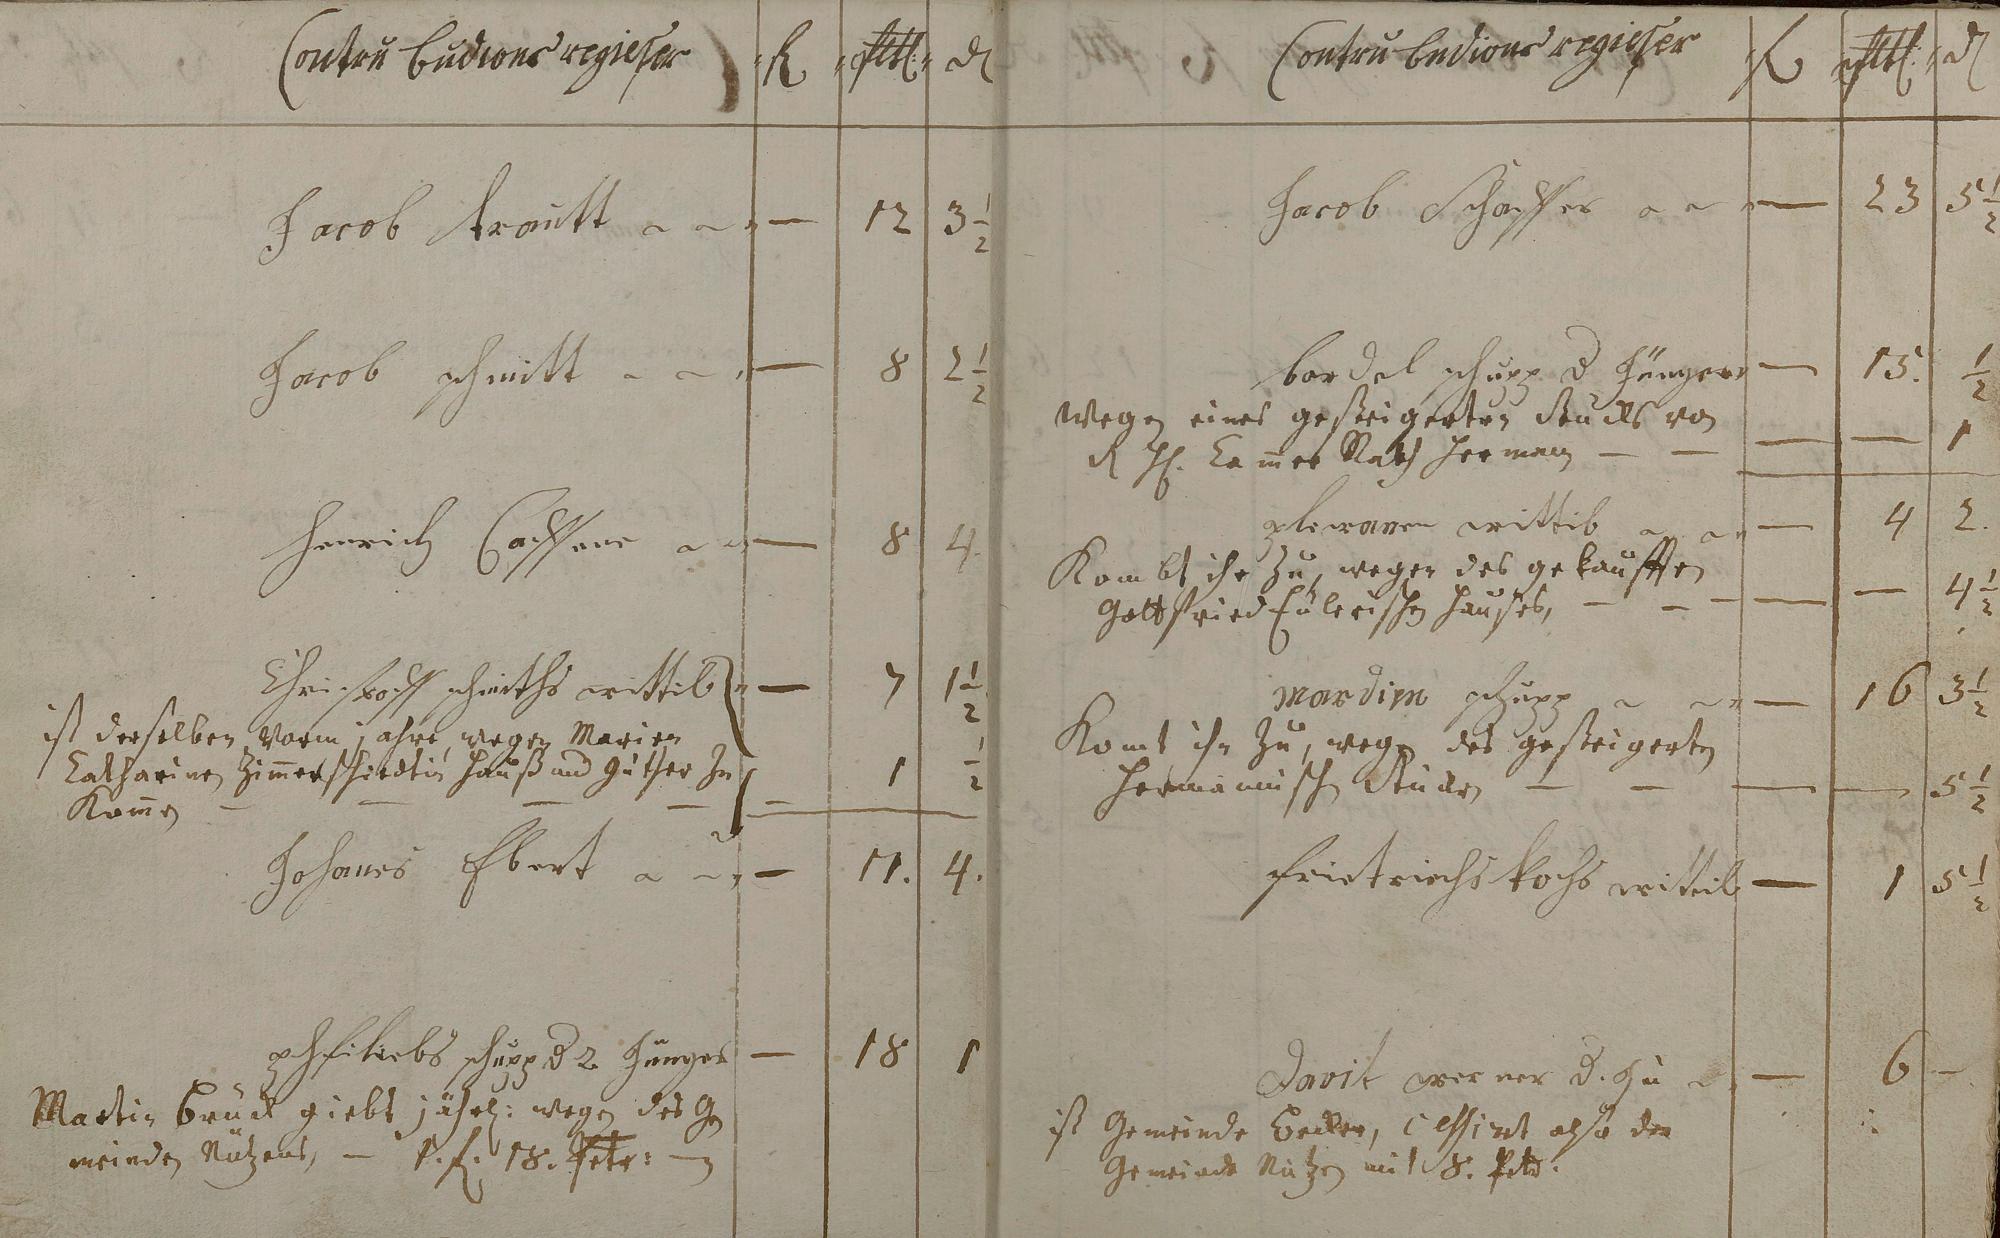 Contru budions regiester fl attl d
Jacob trautt — 12 3 1/2
Jacob schmitt — 8 2 1/2
Henrich — 8 4.
Christoff schmiths wittib — 7 1 1/2
ist derselben vorm jahre, wegen Marien
Catharinen Zimmerschiedtin Hauß und güther zu
Komen — — — — — 1 1/2
Johanes Ebert — 11. 4.
phfiliebs schupp d 2. Jünger — 18 1
Martin Brück giebt jährl: wegen des Ge
meinden Nützens, — 1. fl. 18. Petr: —
Contru budions regiester fl attl d
Jacob Schaffer — 23 5 1/2
bardel schupp d Jünger — 15. 1/2
wegen eines gesteigerten stucks von
H. Cammer Rath Herman — — — — 1
wittib — 4 2.
Kombt ihr zu, wegen des gekaufften
Gottfried Eulerischen Hauses, — — — — — 4 1/2
mardien schupp — 16 3 1/2
Komt ihm zu, wegen des gesteigerten
Hermannischen — — — — 5 1/2
frietriechs kochs wittib — 1 5 1/2
Davit werner d. Ju — 6 —
ist Gemeinde Becker, cessirt also der
Gemeinde Nutzen mit 8. Petr: